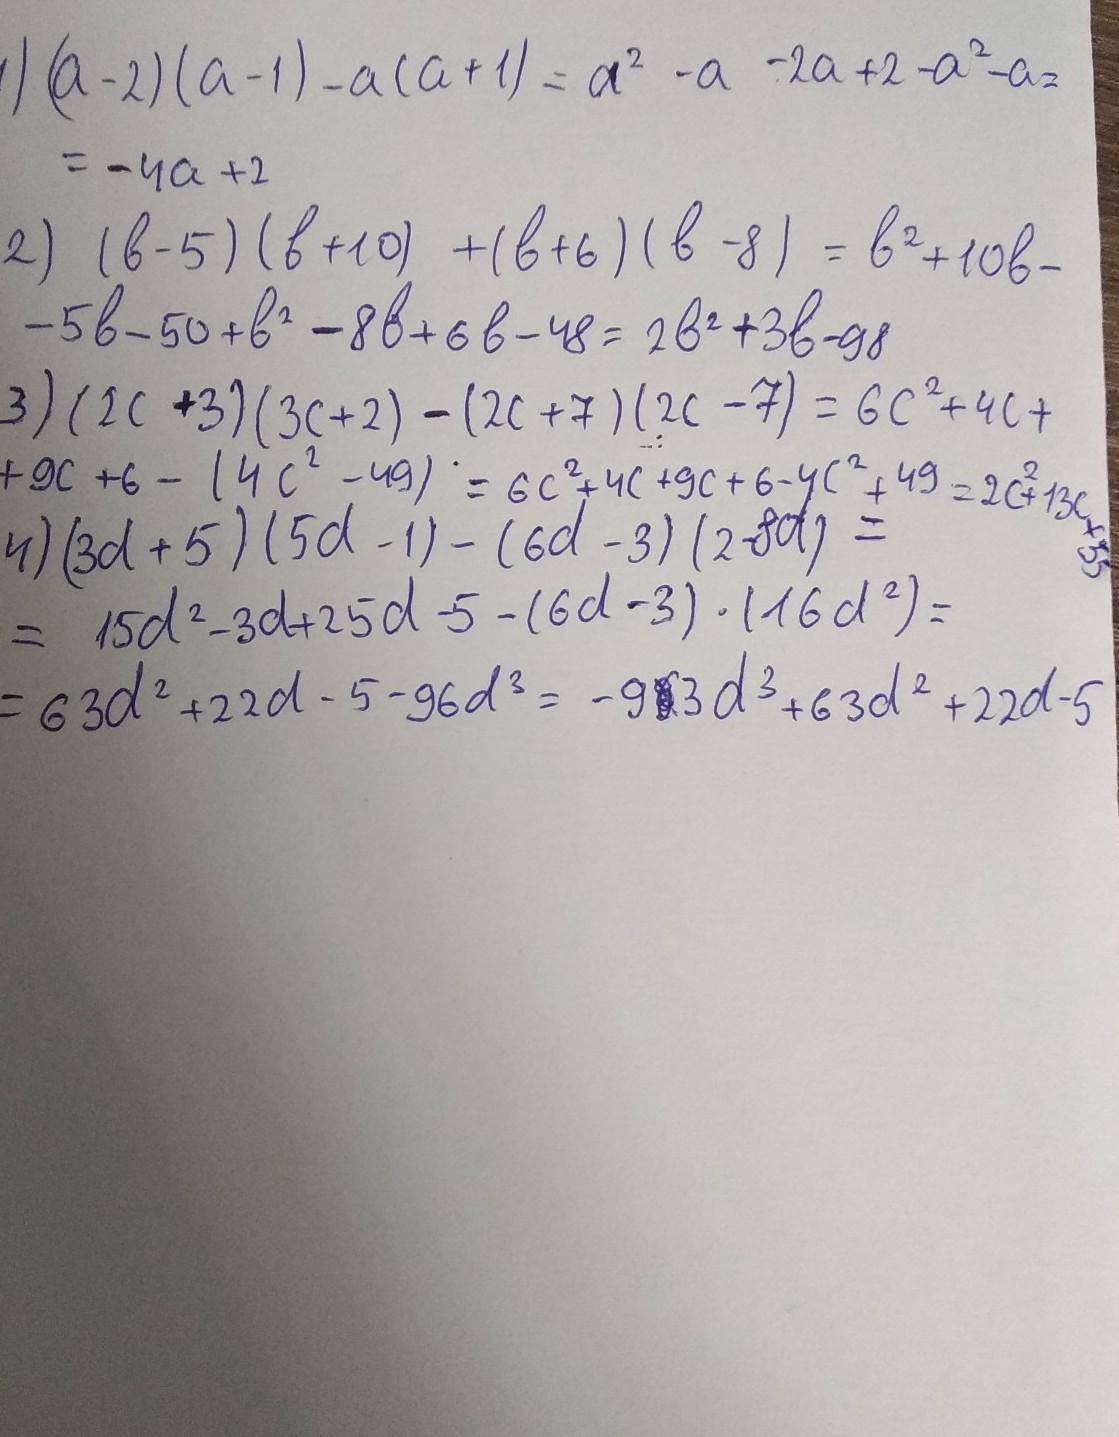 1) (a-2)(a-1)-a(a+1) = a² -a -2a+2-a²-a=
= -4a+2
2) (b-5)(b+10) +(b+6)(b-8) = b²+10b-
-5b-50+b²-8b+6b-48= 2b²+3b-98
3) (2c+3)(3c+2) -(2c+7)(2c-7) = 6c²+4c+
+9c+6-(4c²-49) = 6c²+4c+9c+6-4c²+49=2c²+13c+55
4) (3d+5)(5d-1)-(6d-3)(2-8d) =
= 15d²-3d+25d-5-(6d-3)·(16d²)=
= 63d²+22d-5-96d³= -93d³+63d²+22d-5